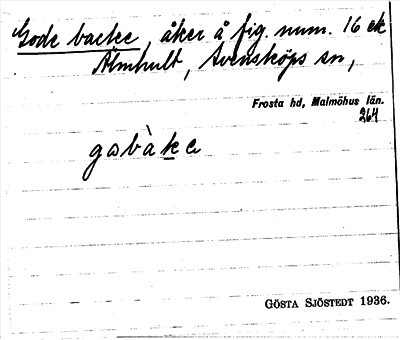 Gode backe, åker å fig. num. 16 ek
Älmhult, Svensköps sn,
Frosta hd, Malmöhus län.
264
gɷbàkɐ
GÖSTA SJÖSTEDT 1936.